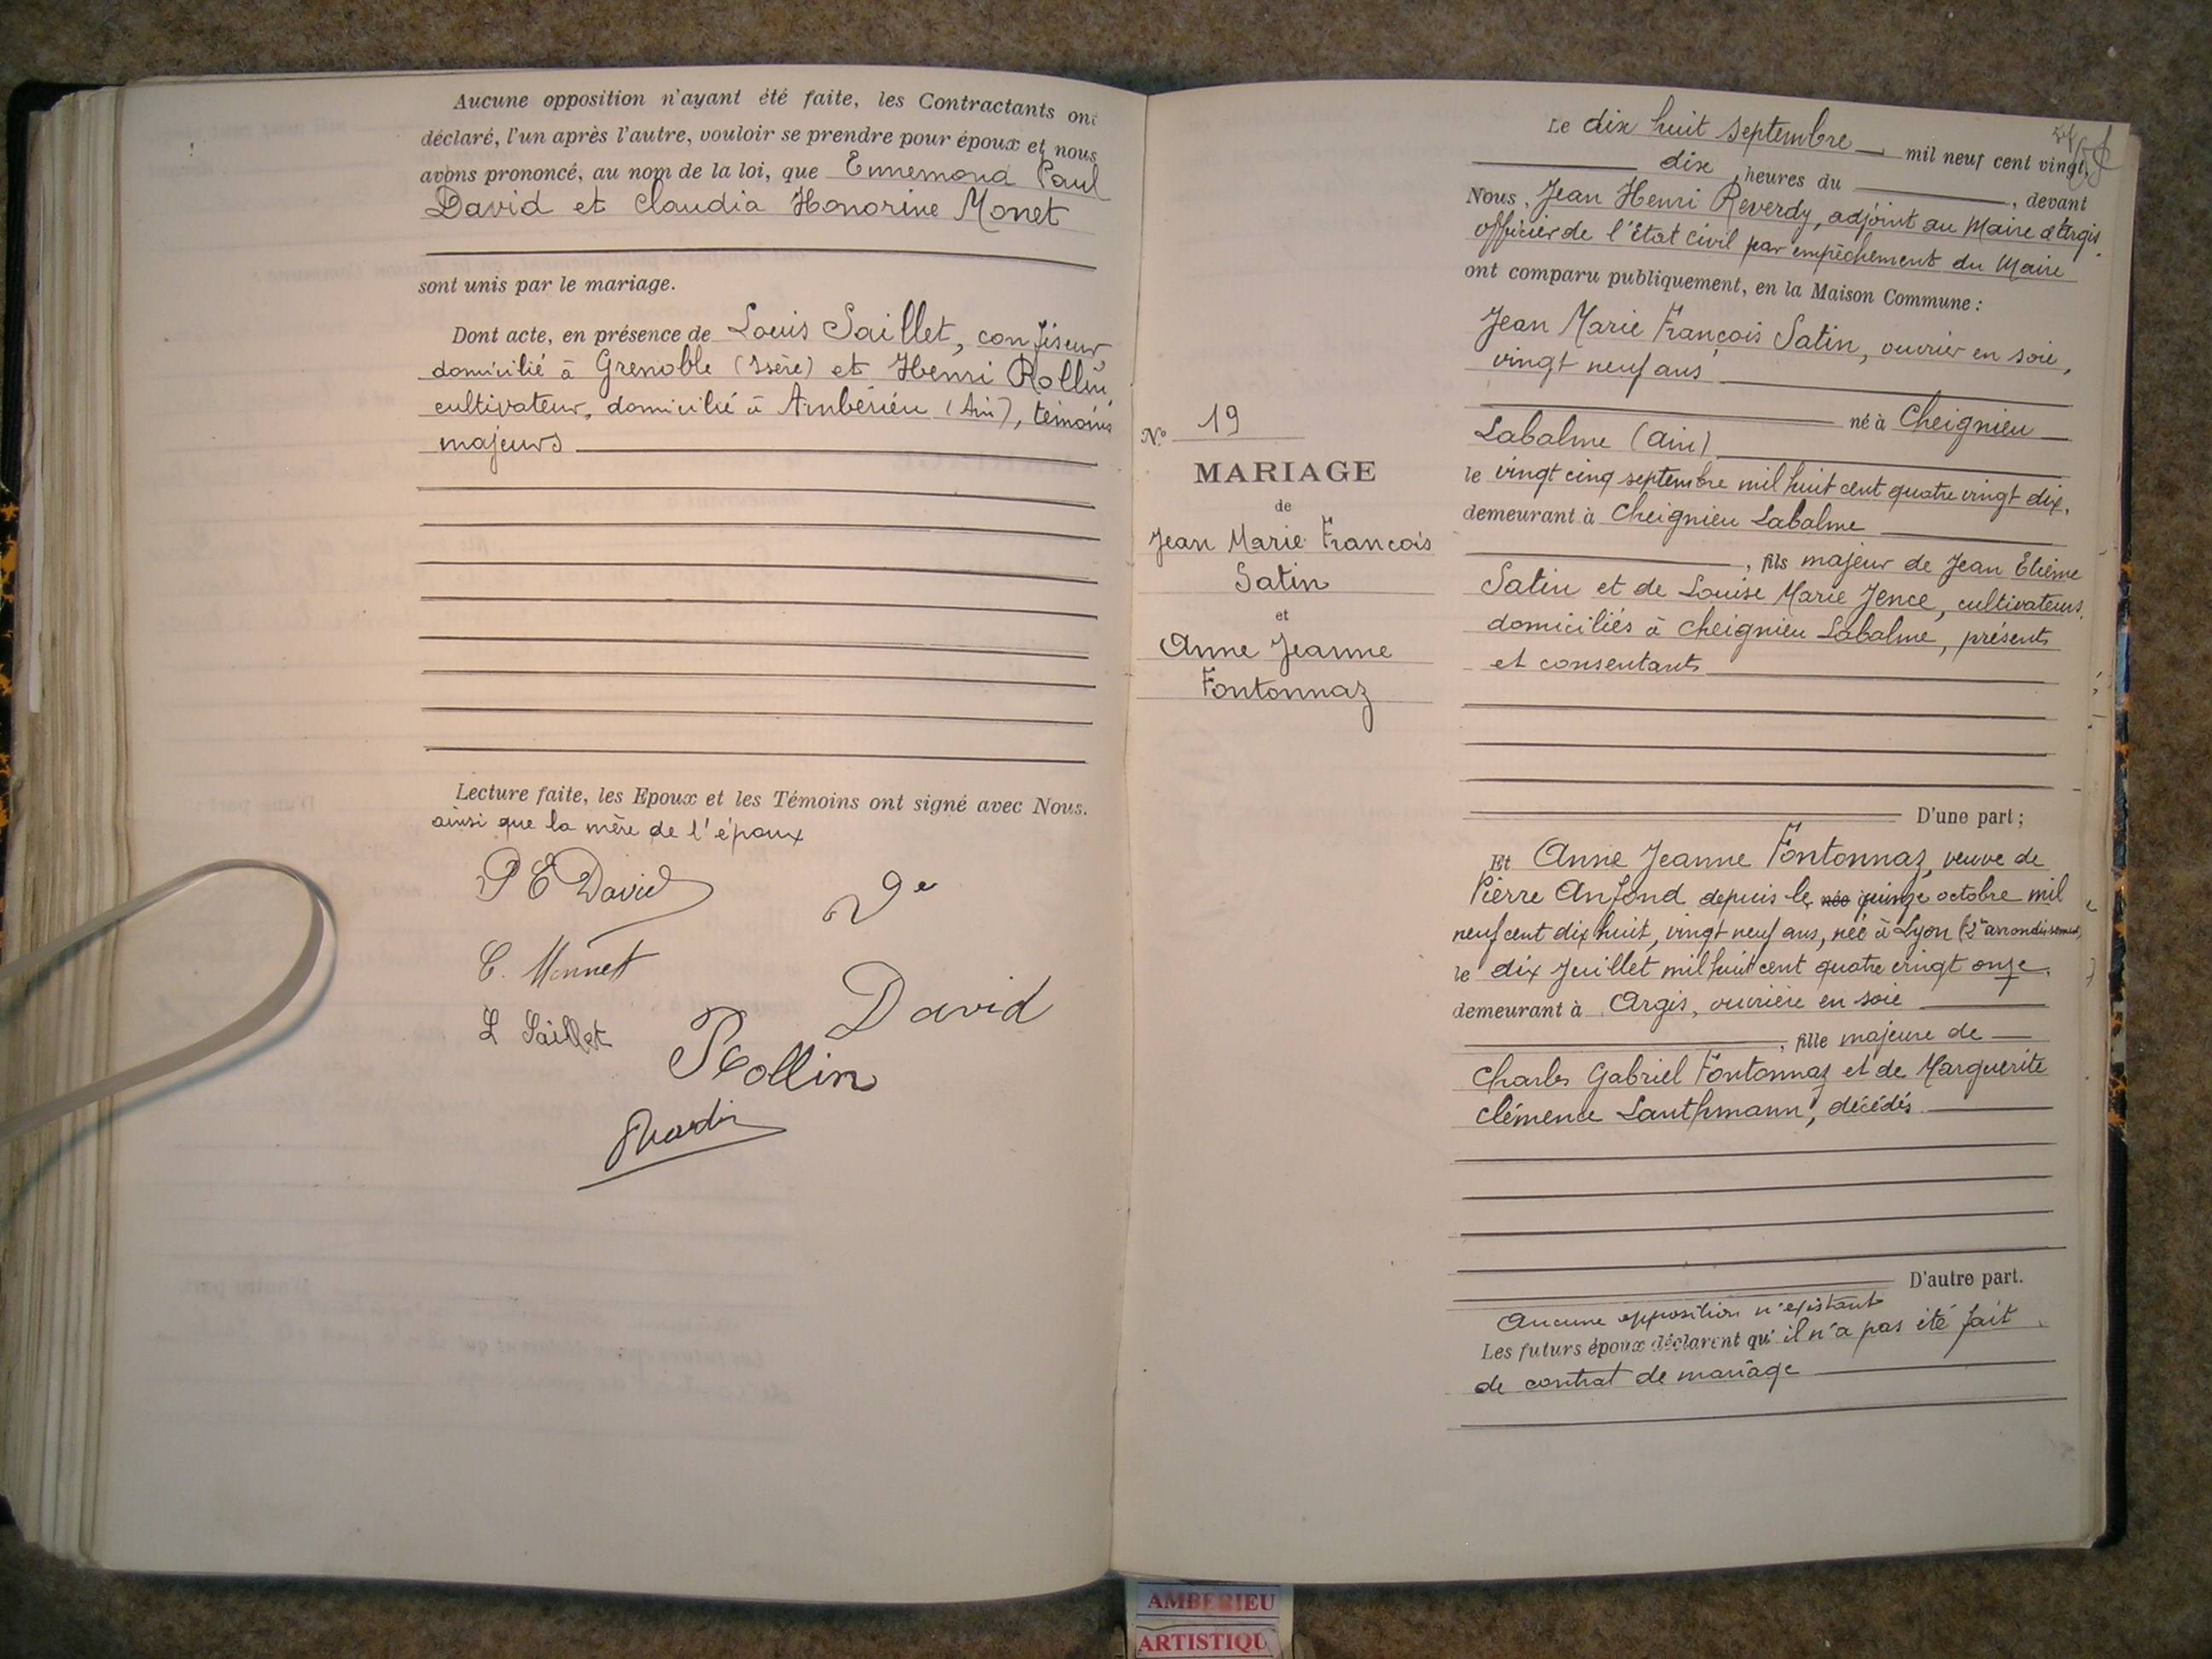 Aucune opposition n'ayant été faite, les Contractants ont
déclaré, l'un après l'autre, vouloir se prendre pour époux et nous
avons prononcé, au nom de la loi, que Ennemond Paul
David et Claudia Honorine Monet
sont unis par le mariage.
Dont acte, en présence de Louis Saillet, confiseur,
domicilié à Grenoble (Isère) et Henri Rollin,
cultivateur, domicilié à Ambérieu (Ain), témoins
majeurs
Lecture faite, les Epoux et les Témoins ont signé avec Nous.
ainsi que la mère de l'époux
P E David
Ve
C. Monnet
David
L Saillet
Rollin
N° 19
MARIAGE
de
Jean Marie François
Satin
et
Anne Jeanne
Fontonnaz
Le dix huit septembre mil neuf cent vingt,
dix heures du , devant
Nous, Jean Henri Reverdy, adjoint au Maire d'Argis
officier de l'Etat civil par empêchement du Maire
ont comparu publiquement, en la Maison Commune :
Jean Marie François Satin, ouvrier en soie,
vingt neuf ans
né à Cheignieu
Labalme (Ain)
le vingt cinq septembre mil huit cent quatre vingt dix,
demeurant à Cheignieu Labalme
, fils majeur de Jean Etienne
Satin et de Louise Marie Jence, cultivateurs
domiciliés à Cheignieu Labalme, présents
et consentants
D'une part ;
Et Anne Jeanne Fontonnaz, veuve de
Pierre Anfond depuis le née quinze octobre mil
neuf cent dix huit, vingt neuf ans, née à Lyon (2e arrondissement)
le dix Juillet mil huit cent quatre vingt onze,
demeurant à Argis, ouvrière en soie
, fille majeure de
Charles Gabriel Fontonnaz et de Marguerite
Clémence Lauthmann, décédés
D'autre part.
Aucune opposition n'existant
Les futurs époux déclarent qu'il n'a pas été fait
de contrat de mariage
AMBERIEU
ARTISTIQU